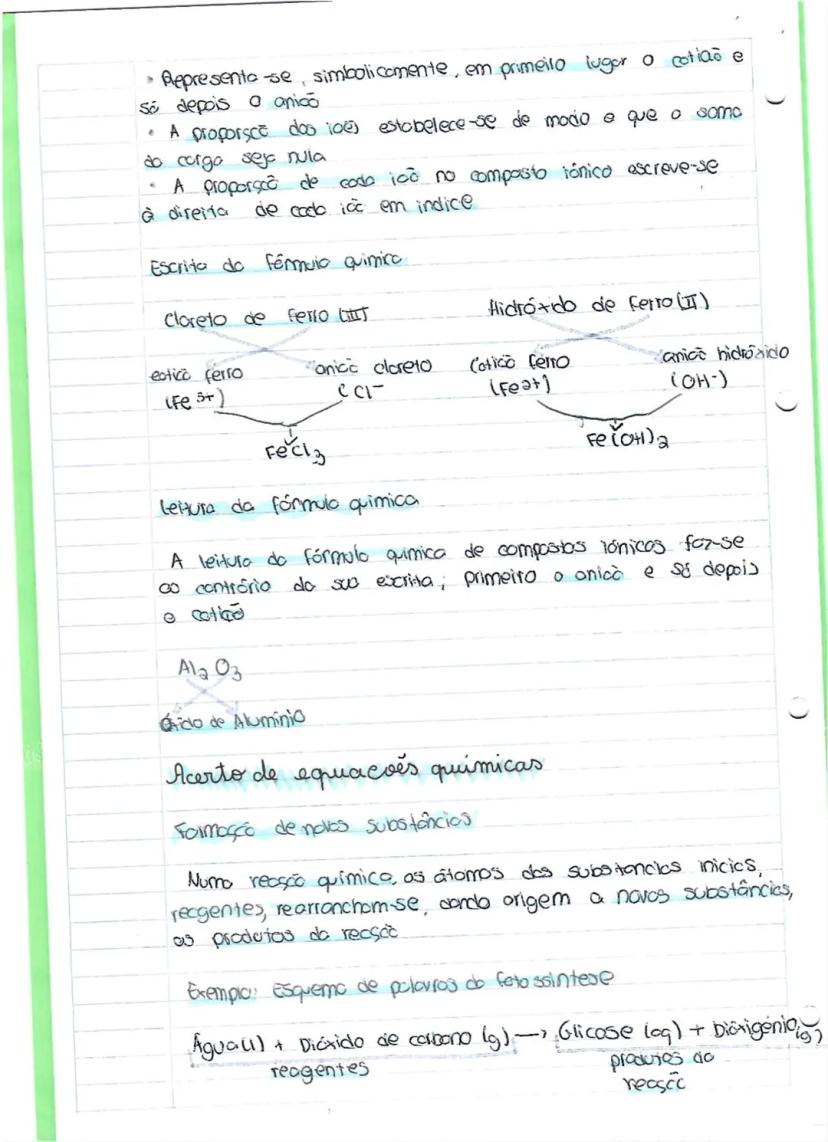 • Representa-se, simbolicamente, em primeiro lugar o catião e
só depois o anião
• A proporção dos iões estabelece-se de modo a que a soma
da carga seja nula
• A proporção de cada ião no composto iónico escreve-se
à direita de cada ião em índice
Escrita da fórmula química
Cloreto de ferro (III)
Hidróxido de ferro (II)
catião ferro
anião cloreto
Catião ferro
anião hidróxido
(Fe 3+)
(Cl-
(Fe2+)
(OH-)
FeCl3
Fe(OH)2
Leitura da fórmula química
A leitura da fórmula química de compostos iónicos faz-se
ao contrário da sua escrita; primeiro o anião e só depois
o catião
Al2 O3
Óxido de Alumínio
Acerto de equações químicas
Formação de novas substâncias
Numa reação química, os átomos das substancias inicias,
reagentes, rearrancham-se, dando origem a novas substâncias,
os produtos da reação
Exemplo: Esquema de palavras da fotossíntese
Água(l) + Dióxido de carbono (g) → Glicose (aq) + Dióxigénio(g)
reagentes
produtos da
reação